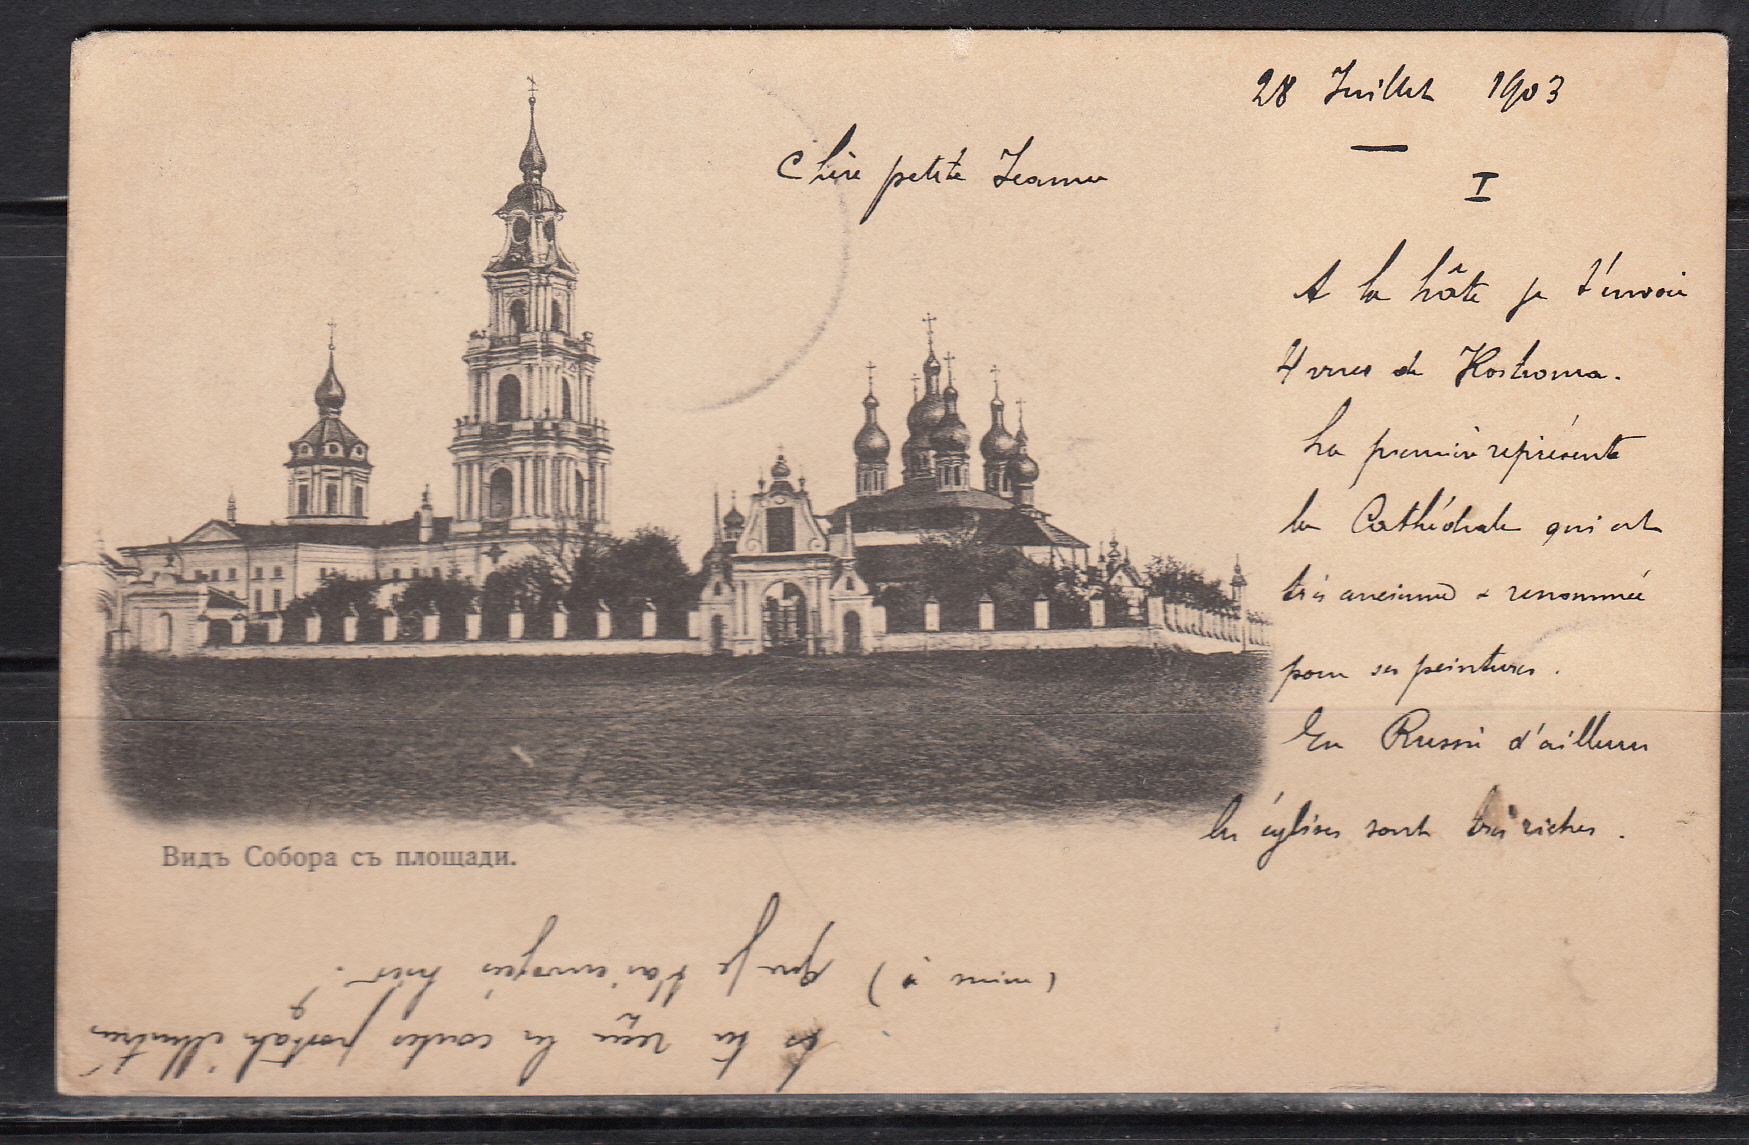 28 Juillet 1903
Chère petite Jeanne
I
A la hâte je t'envoie
4 vues de Kostroma.
La première représente
la Cathédrale qui est
très ancienne & renommée
pour ses peintures.
En Russie d'ailleurs
les églises sont très riches.
Видъ Собора съ площади.
As tu reçu les cartes postale illustrées
que je t'ai envoyées hier?
(suive à)